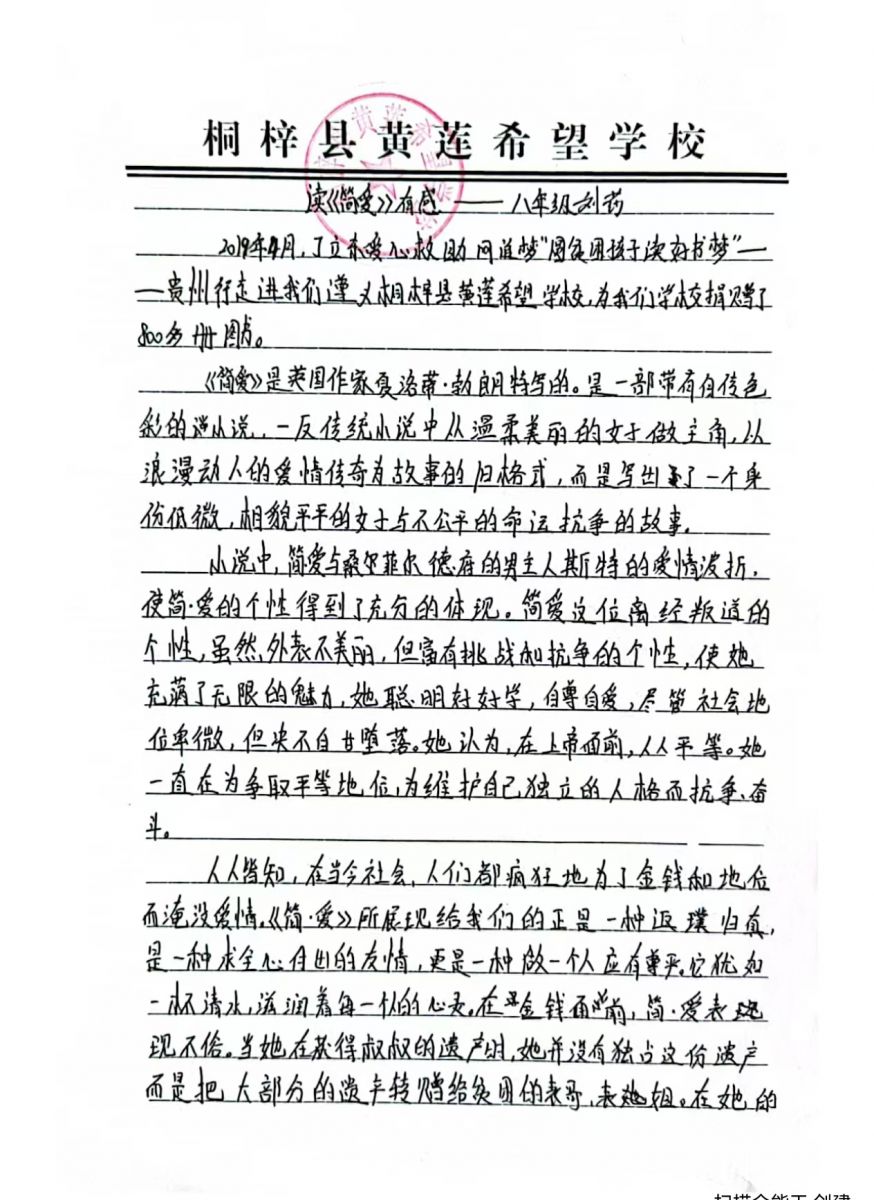 桐梓县黄莲希望学校
读《简爱》有感——八年级刘药
2019年4月,广东爱心救助网追梦"圆贫困孩子读好书梦"—
—贵州行走进我们遵义桐梓县黄莲希望学校,为我们学校捐赠了
800多册图书。
《简爱》是英国作家夏洛蒂·勃朗特写的。是一部带有自传色
彩的小说,一反传统小说中从温柔美丽的女子做主角,以
浪漫动人的爱情传奇为故事的旧格式,而是写出了一个身
份低微,相貌平平的女子与不公平的命运抗争的故事。
小说中,简爱与桑尔菲尔德府的男主人斯特的爱情波折,
使简·爱的个性得到了充分的体现。简爱这位离经叛道的
个性,虽然外表不美丽,但富有挑战和抗争的个性,使她
充满了无限的魅力,她聪明好好学,自尊自爱,尽管社会地
位卑微,但决不自甘堕落。她认为,在上帝面前,人人平等。她
一直在为争取平等地位,为维护自己独立的人格而抗争、奋
斗。
人人皆知,在当今社会,人们都疯狂地为了金钱和地位
而淹没爱情。《简·爱》所展现给我们的正是一种返璞归真,
是一种求全心付出的友情,更是一种做一个人应有尊严。它犹如
一杯清水,滋润着每一个人的心灵。在金钱面前,简·爱表
现不俗。当她在获得叔叔的遗产时,她并没有独占这份遗产
而是把大部分的遗产转赠给贫困的表哥、表姐。在她的
扫描全能王 创建